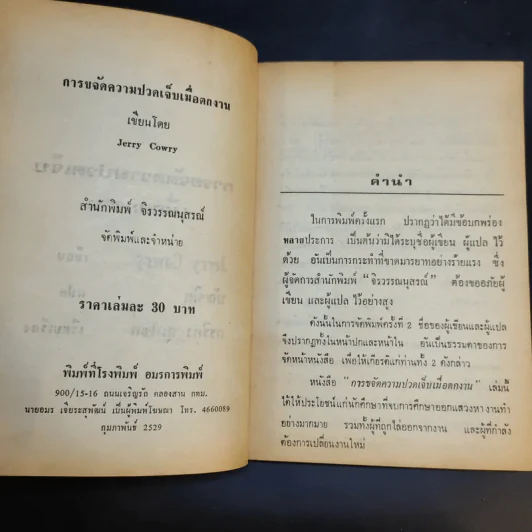 การขจัดความปวดเจ็บเมื่อตกงาน
เขียนโดย
Jerry Cowry
สำนักพิมพ์ จิรวรรณนุสรณ์
จัดพิมพ์และจำหน่าย
ราคาเล่มละ 30 บาท
พิมพ์ที่โรงพิมพ์ อมรการพิมพ์
900/15-16 ถนนเจริญรัถ คลองสาน กทม.
นายอมร เจียระสุพัฒน์ เป็นผู้พิมพ์โฆษณา โทร. 4660089
กุมภาพันธ์ 2529
คำนำ
ในการพิมพ์ครั้งแรก ปรากฏว่าได้มีข้อบกพร่อง
หลายประการ เป็นต้นว่ามิได้ระบุชื่อผู้เขียน ผู้แปล ไว้
ด้วย อันเป็นการกระทำที่ขาดมารยาทอย่างร้ายแรง ซึ่ง
ผู้จัดการสำนักพิมพ์ "จิรวรรณนุสรณ์" ต้องขออภัยผู้
เขียน และผู้แปล ไว้อย่างสูง
ดังนั้นในการจัดพิมพ์ครั้งที่ 2 ชื่อของผู้เขียนและผู้แปล
จึงปรากฏทั้งในหน้าปกและหน้าใน อันเป็นธรรมดาของการ
จัดหน้าหนังสือ เพื่อให้เกียรติแก่ท่านทั้ง 2 ดังกล่าว
หนังสือ "การขจัดความปวดเจ็บเมื่อตกงาน" เล่มนี้
ได้ให้ประโยชน์แก่นักศึกษาที่จบการศึกษาออกแสวงหางานทำ
อย่างมากมาย รวมทั้งผู้ที่ถูกไล่ออกจากงาน และผู้ที่กำลัง
ต้องการเปลี่ยนงานใหม่